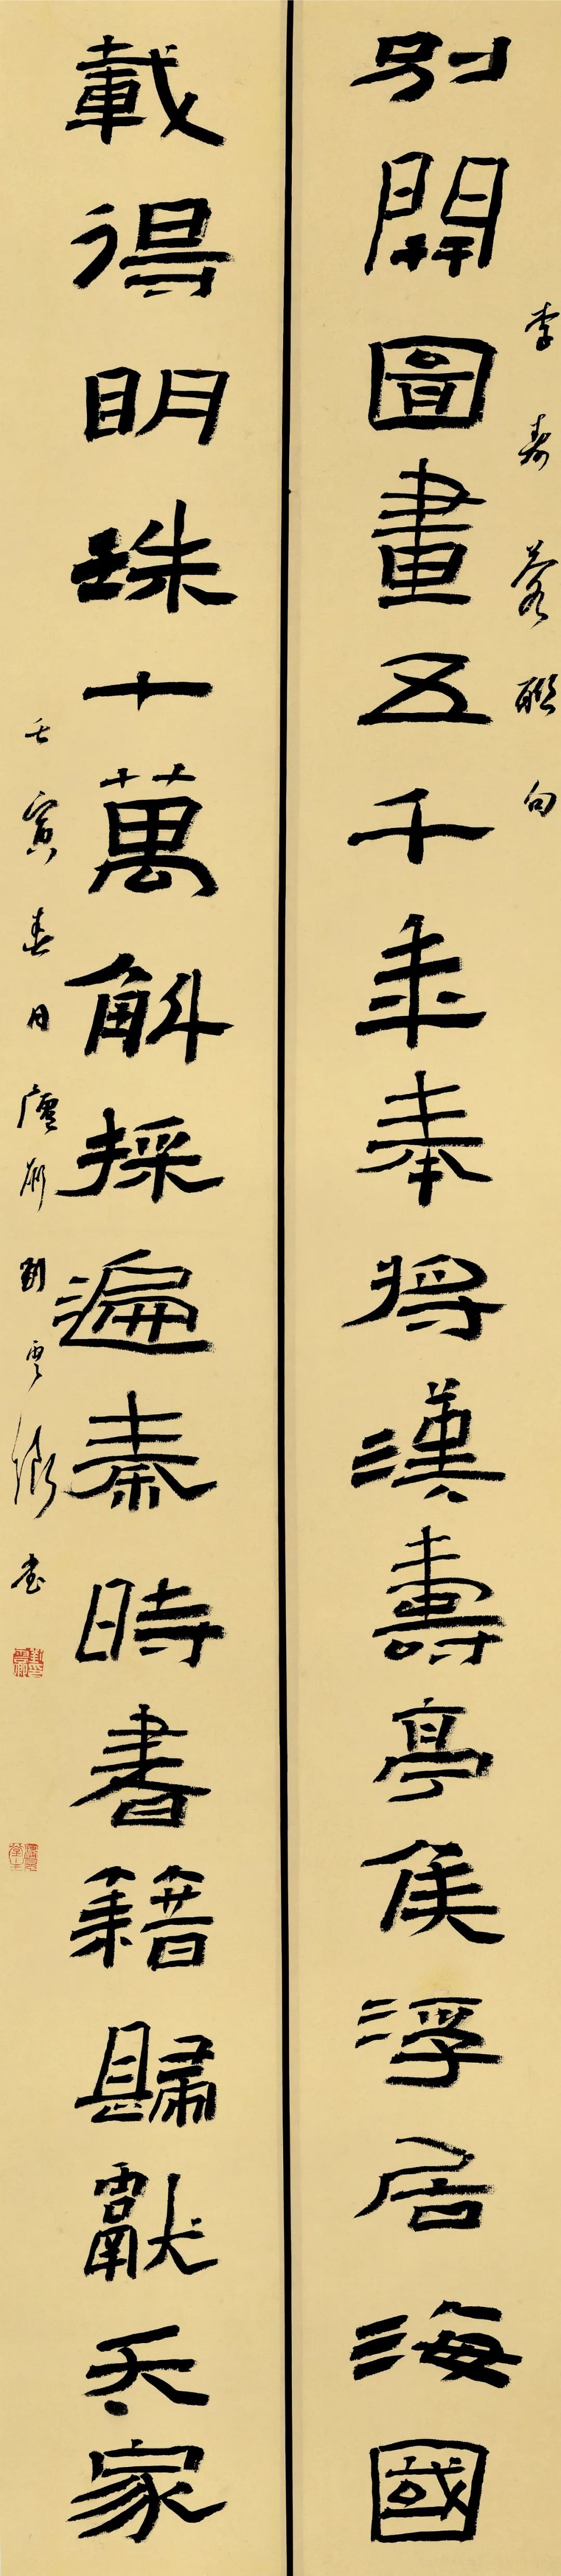 李壽蓉聯句
別開圖畫五千年奉將漢壽亭侯浮居海國
載得明珠十萬斛採遍秦時書籍歸獻天家
壬寅春日廬劉雲書